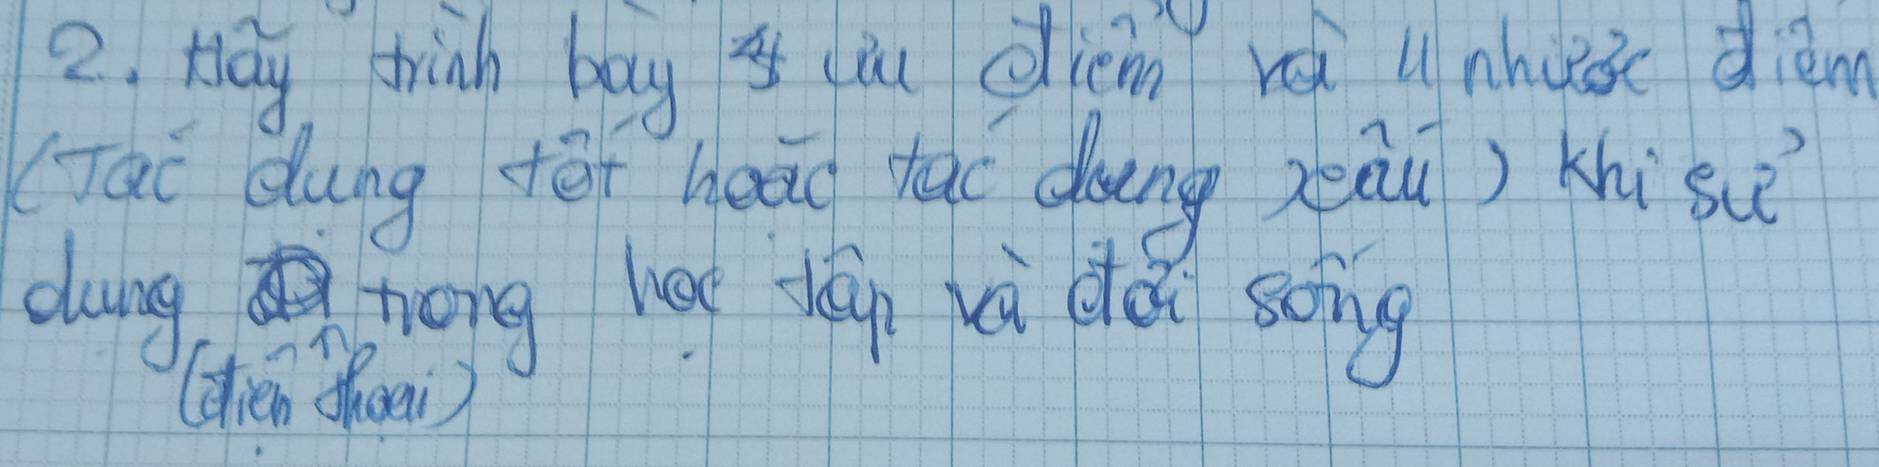 2. Hãy trình bày 4 ưu điểm và 4 nhược điểm
(Tác dụng tốt hoặc tác dụng xấu) khi sử
dụng trong học tập và đời sống
(điện thoại)